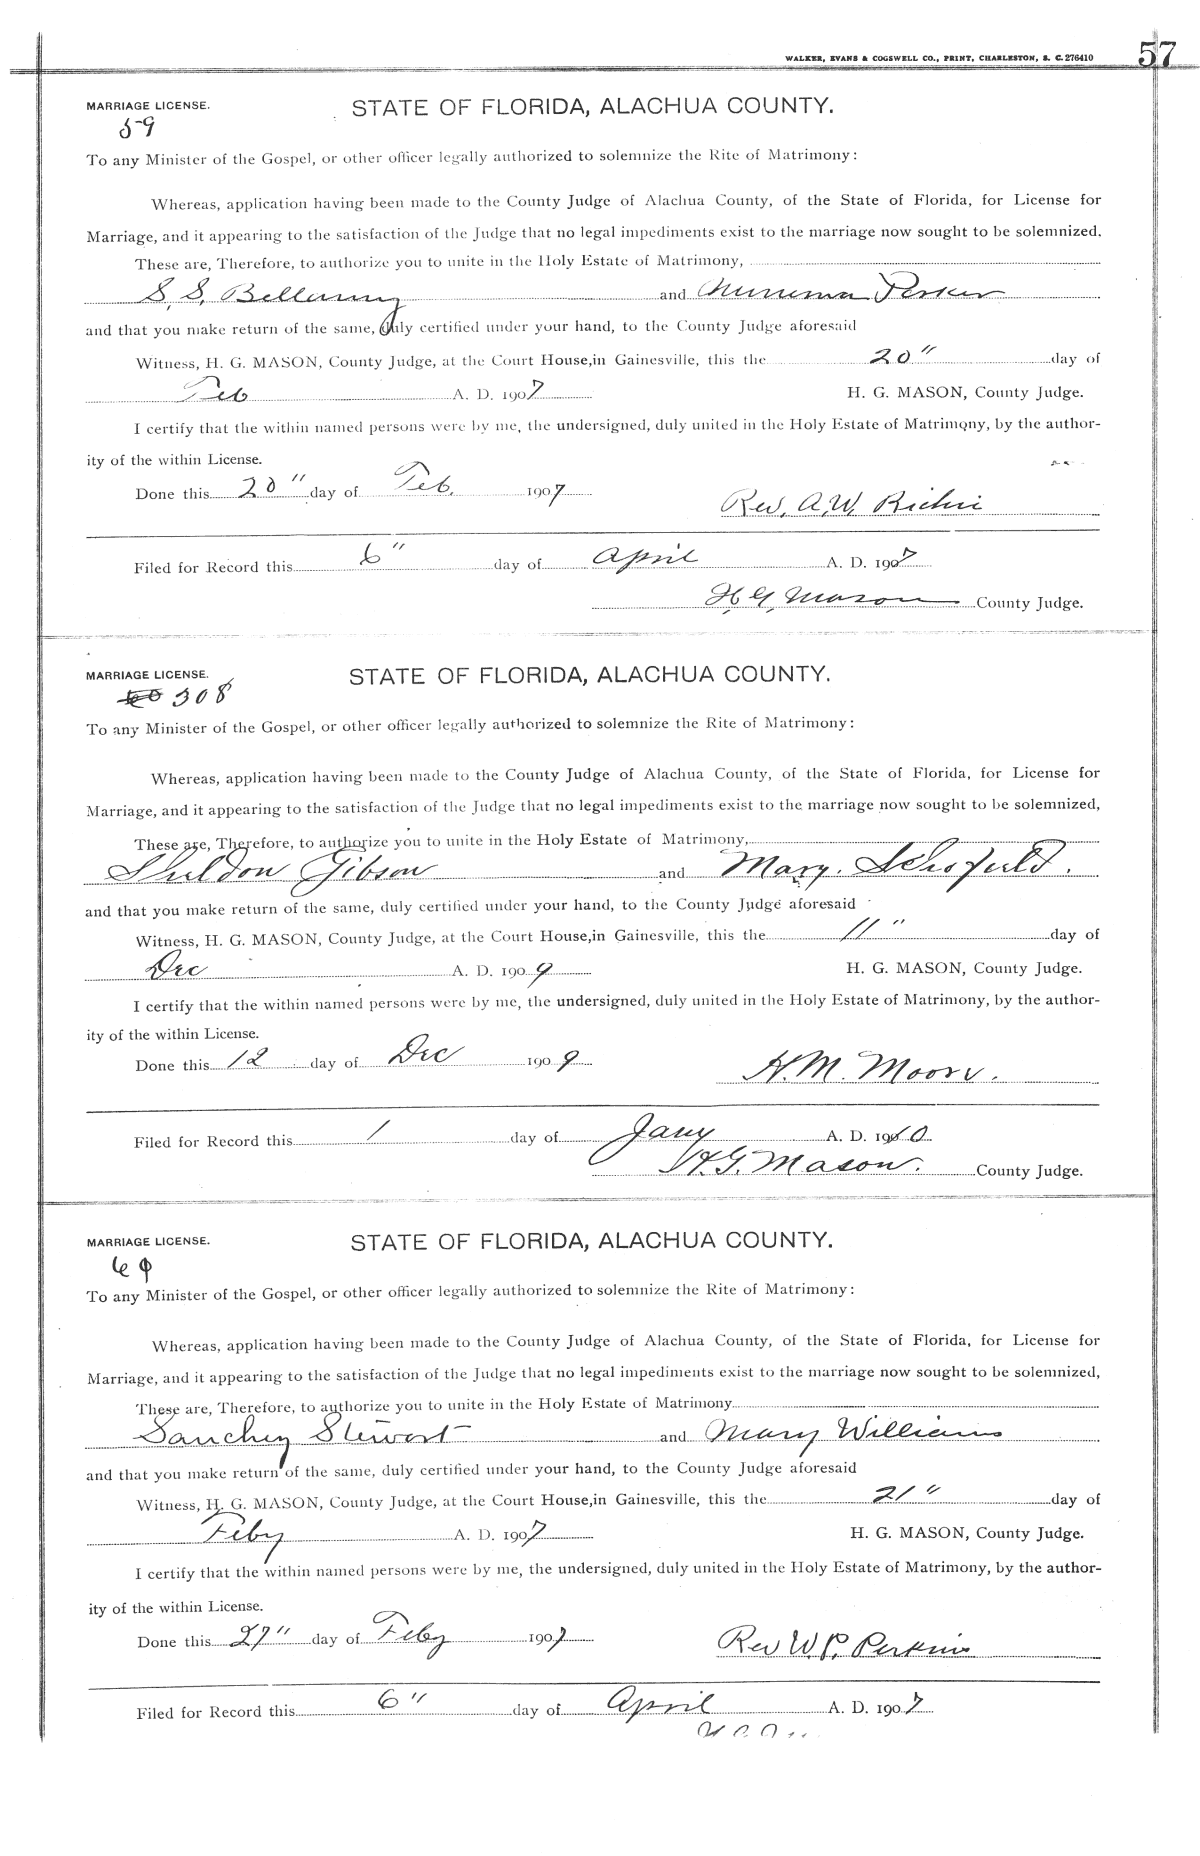 WALKER, EVANS & COGSWELL CO., PRINT, CHARLESTON, S. C. 276410
57
MARRIAGE LICENSE.
STATE OF FLORIDA, ALACHUA COUNTY.
59
To any Minister of the Gospel, or other officer legally authorized to solemnize the Rite of Matrimony:
Whereas, application having been made to the County Judge of Alachua County, of the State of Florida, for License for
Marriage, and it appearing to the satisfaction of the Judge that no legal impediments exist to the marriage now sought to be solemnized,
These are, Therefore, to authorize you to unite in the Holy Estate of Matrimony,
S. S. Bellamy and Parker
and that you make return of the same, duly certified under your hand, to the County Judge aforesaid
Witness, H. G. MASON, County Judge, at the Court House, in Gainesville, this the 20" day of
Feb A. D. 1907 H. G. MASON, County Judge.
I certify that the within named persons were by me, the undersigned, duly united in the Holy Estate of Matrimony, by the author-
ity of the within License.
Done this 20" day of Feb. 1907
Rev. A. W. Richie
Filed for Record this 6" day of April A. D. 1907
H. G. Mason County Judge.
MARRIAGE LICENSE.
STATE OF FLORIDA, ALACHUA COUNTY.
308
To any Minister of the Gospel, or other officer legally authorized to solemnize the Rite of Matrimony:
Whereas, application having been made to the County Judge of Alachua County, of the State of Florida, for License for
Marriage, and it appearing to the satisfaction of the Judge that no legal impediments exist to the marriage now sought to be solemnized,
These are, Therefore, to authorize you to unite in the Holy Estate of Matrimony,
Sheldon Gibson and Mary. Schofield.
and that you make return of the same, duly certified under your hand, to the County Judge aforesaid
Witness, H. G. MASON, County Judge, at the Court House, in Gainesville, this the 11" day of
Dec A. D. 1909 H. G. MASON, County Judge.
I certify that the within named persons were by me, the undersigned, duly united in the Holy Estate of Matrimony, by the author-
ity of the within License.
Done this 12 day of Dec 1909
H. M. Moore.
Filed for Record this 1 day of Jany A. D. 1910
H. G. Mason. County Judge.
MARRIAGE LICENSE.
STATE OF FLORIDA, ALACHUA COUNTY.
To any Minister of the Gospel, or other officer legally authorized to solemnize the Rite of Matrimony:
Whereas, application having been made to the County Judge of Alachua County, of the State of Florida, for License for
Marriage, and it appearing to the satisfaction of the Judge that no legal impediments exist to the marriage now sought to be solemnized,
These are, Therefore, to authorize you to unite in the Holy Estate of Matrimony
Sanchey Stewart and Mary Williams
and that you make return of the same, duly certified under your hand, to the County Judge aforesaid
Witness, H. G. MASON, County Judge, at the Court House, in Gainesville, this the 21" day of
Feby A. D. 1907 H. G. MASON, County Judge.
I certify that the within named persons were by me, the undersigned, duly united in the Holy Estate of Matrimony, by the author-
ity of the within License.
Done this 27" day of Feby 1907
Rev W. P. Perkins
Filed for Record this 6" day of April A. D. 1907